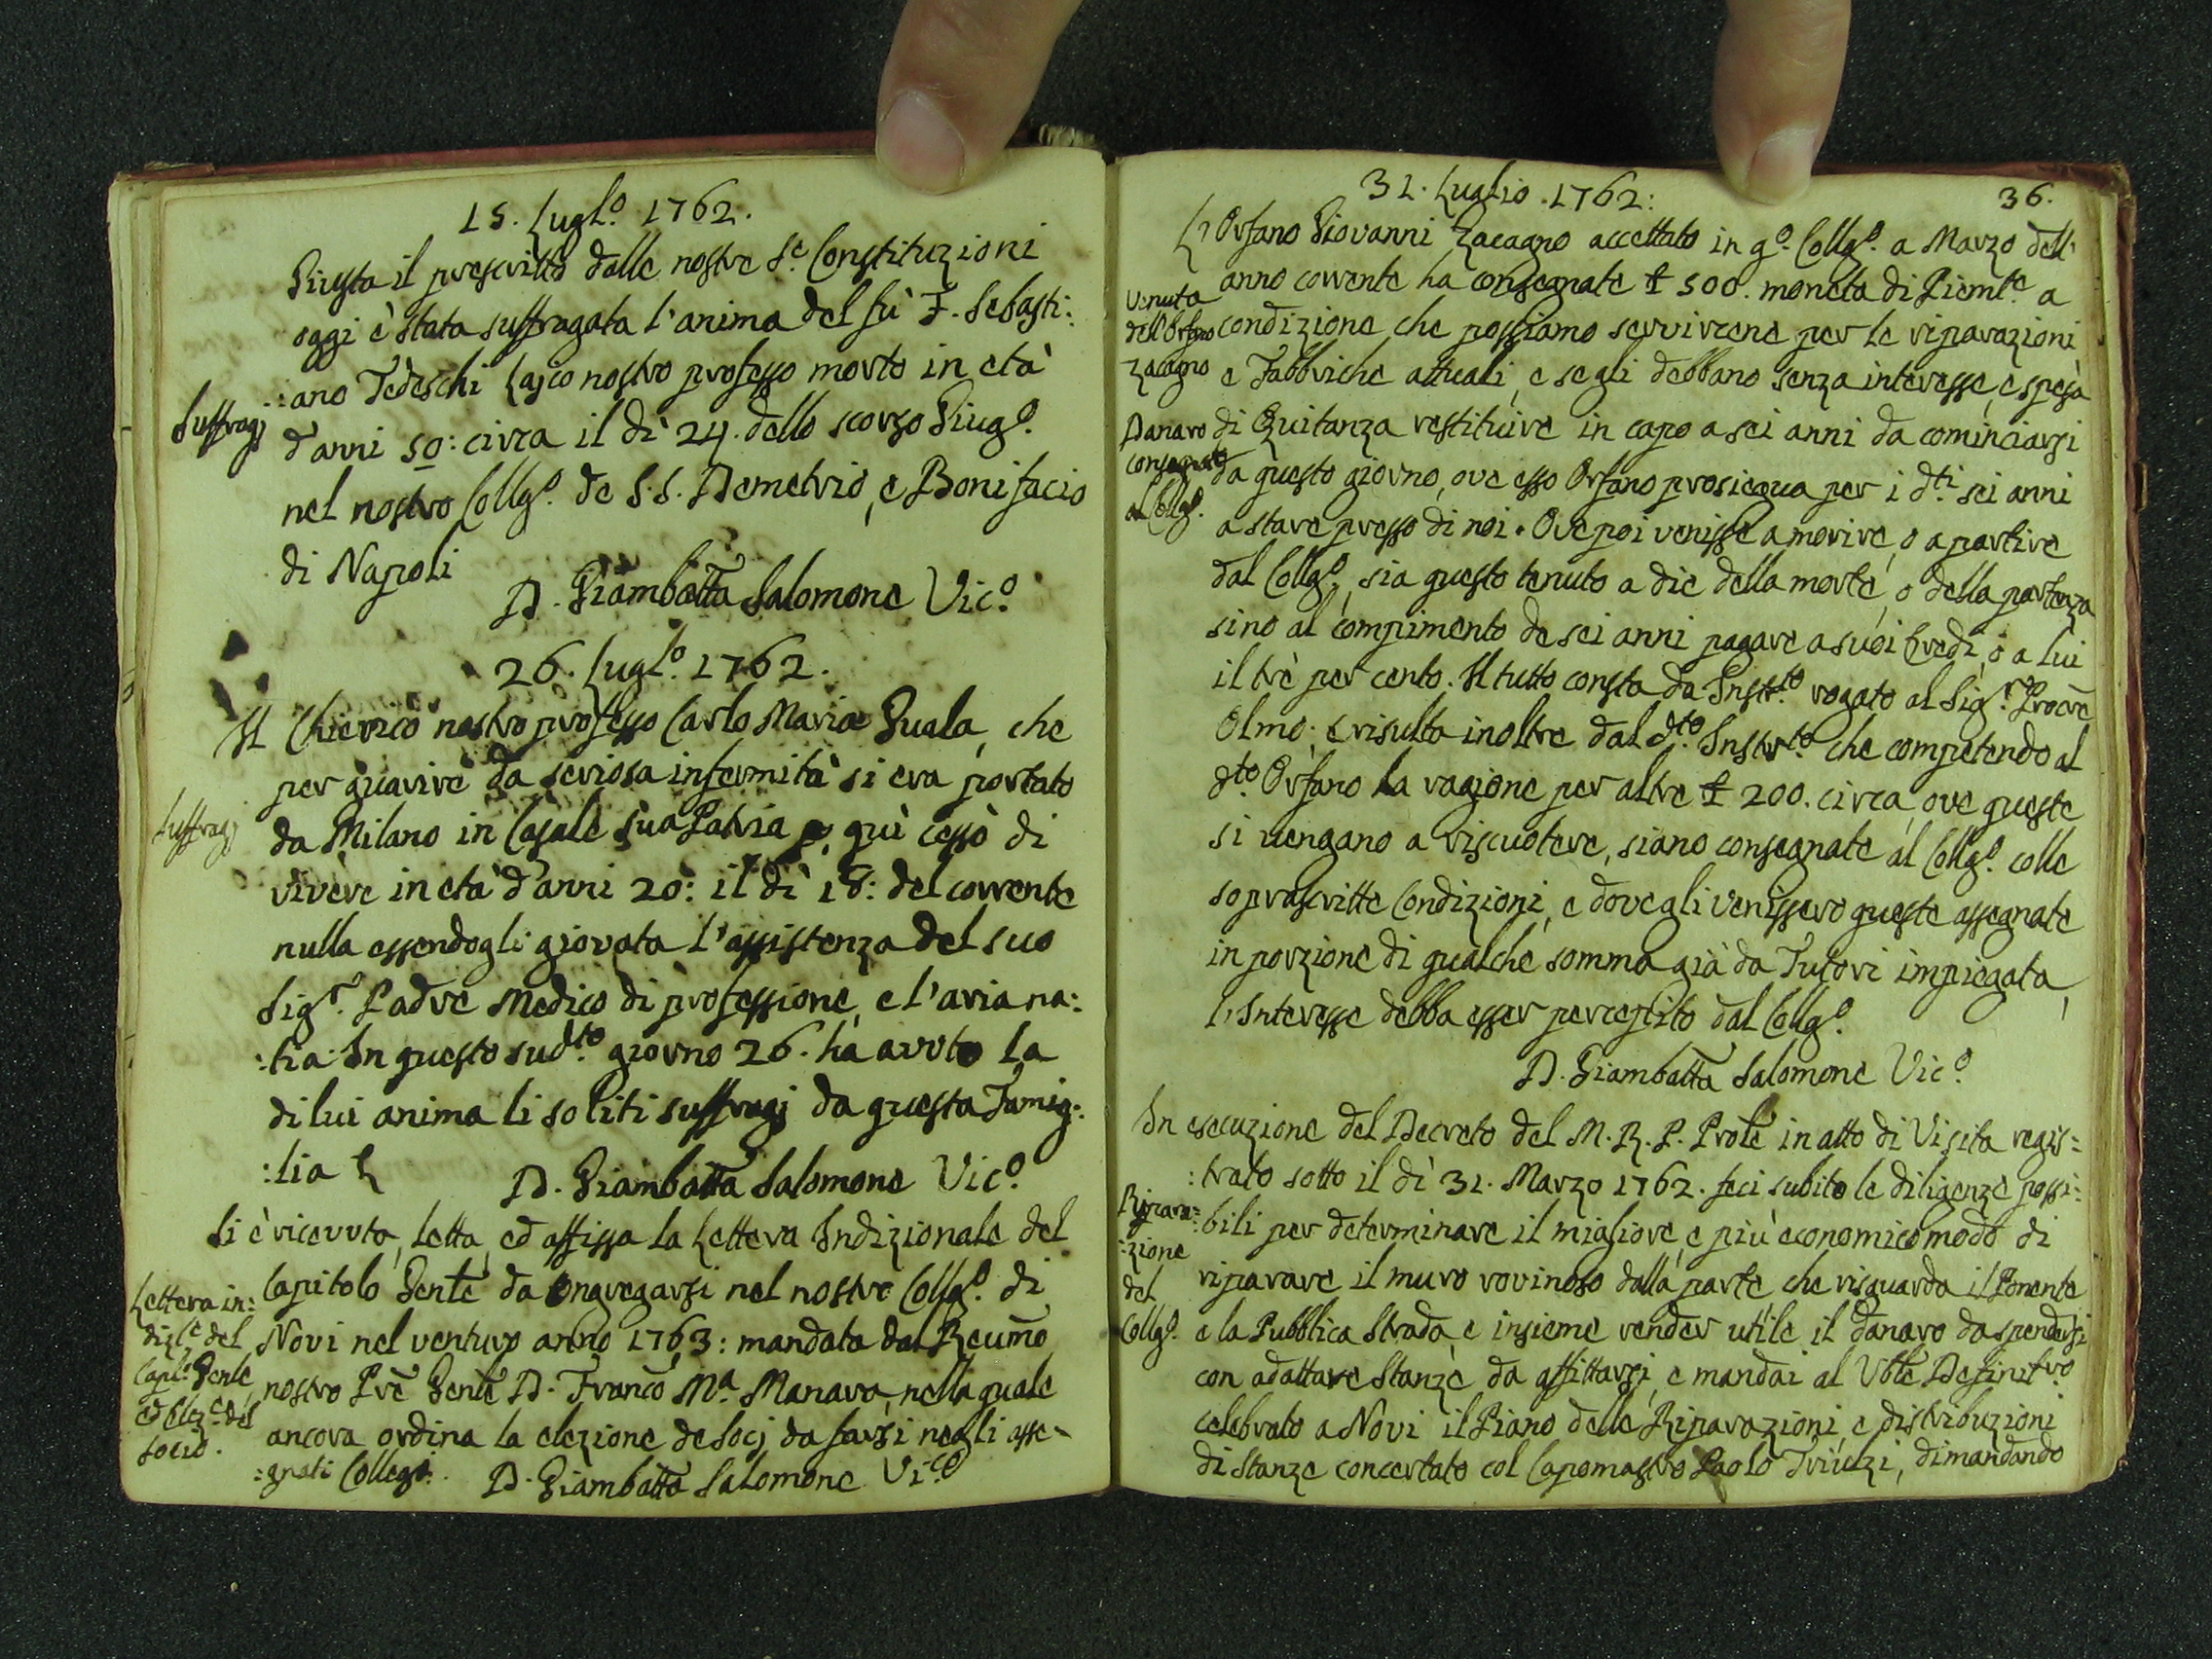 15. Lugl.o 1762.
Giusta il prescritto dalle nostre S.e Constituzioni
oggi è stata suffragata l'anima del fù F. Sebasti:
:ano Tedeschi Lajco nostro professo morto in età
Suffragj
d'anni 50: circa il dì 24. dello scorso Giug.o
nel nostro Collg.o de S.S. Demetrio, e Bonifacio
di Napoli
D. Giambatta Salomone Vic.o
26. Lugl.o 1762.
Il Chierico nostro professo Carlo Maria Guala, che
per guarire da seriosa infermità si era portato
Suffragj
da Milano in Casale sua Patria, quì cessò di
vivere in età d'anni 20: il dì 18: del corrente
nulla essendogli giovata l'assistenza del suo
Sig.r Padre Medico di professione, e l'aria na:
:tia. In questo sud.to giorno 26. ha avvto la
di lui anima li soliti suffragj da questa Famig:
:lia
D. Giambatta Salomone Vic.o
Si è ricevvta, letta, ed affissa la Lettera Indizionale del
Capitolo Gente da Congregarsi nel nostro Collg.o di
Novi nel venturo anno 1763: mandata dal Reumo
nostro Pre Gente D. Franco M.a Manara, nella quale
ancora ordina la elezione de Socj da farsi negli asse-
:gnati Collegi.
Lettera in:
diz.le del
Cap.lo Gente
ed Elez.e del
socio.
D. Giambatta Salomone Vic.o
31. Luglio .1762:
36.
L'Orfano Giovanni Zacagno accettato in q.o Collg.o a Marzo dell'
anno corrente ha consegnate ₤ 500. moneta di Piemte. a
Venuta
dell'Orfano
Zacagno
condizione, che possiamo servircene per le riparazioni
e Fabbriche attuali, e se gli debbano senza interesse, e spesa
Danaro
consegnato
al Collg.o
di Quitanza restituire in capo a sei anni da cominciarsi
da questo giorno, ove esso Orfano prosiegua per i d.ti sei anni
a stare presso di noi. Ove poi venisse a morire, o a partire
dal Collg.o, sia questo tenuto a die della morte, o della partenza
sino al compimento de sei anni pagare a suoi Eredi, o a lui
il trè per cento. Il tutto consta da Instr.to rogato al Sig.r Procre
Olmo; e risulta inoltre dal d.to Instr.to che competendo al
d.to Orfano la ragione per altre ₤ 200. circa, ove queste
si vengano a riscuotere, siano consegnate al Collg.o colle
soprascritte Condizioni, e dove gli venissero queste assegnate
in porzione di qualche somma già da Tutori impiegata,
l'Interesse debba esser percepito dal Collg.o
D. Giambatta Salomone Vic.o
In esecuzione del Decreto del M. R. P. Prole in atto di Visita regis:
:trato sotto il dì 31. Marzo 1762. feci subito le diligenze possi:
Ripara:
:zione
del
Collg.o
:bili per determinare il migliore, e più economico modo di
riparare il muro rovinoso dalla parte che risguarda il Ponente
e la Pubblica Strada, e insieme render utile il danaro da spendersi
con adattare Stanze da affittarsi, e mandai al Vble Definit.ro
celebrato a Novi il Piano delle Riparazioni, e distribuzioni
di Stanze concertato col Capomastro Paolo Triulzi, dimandando